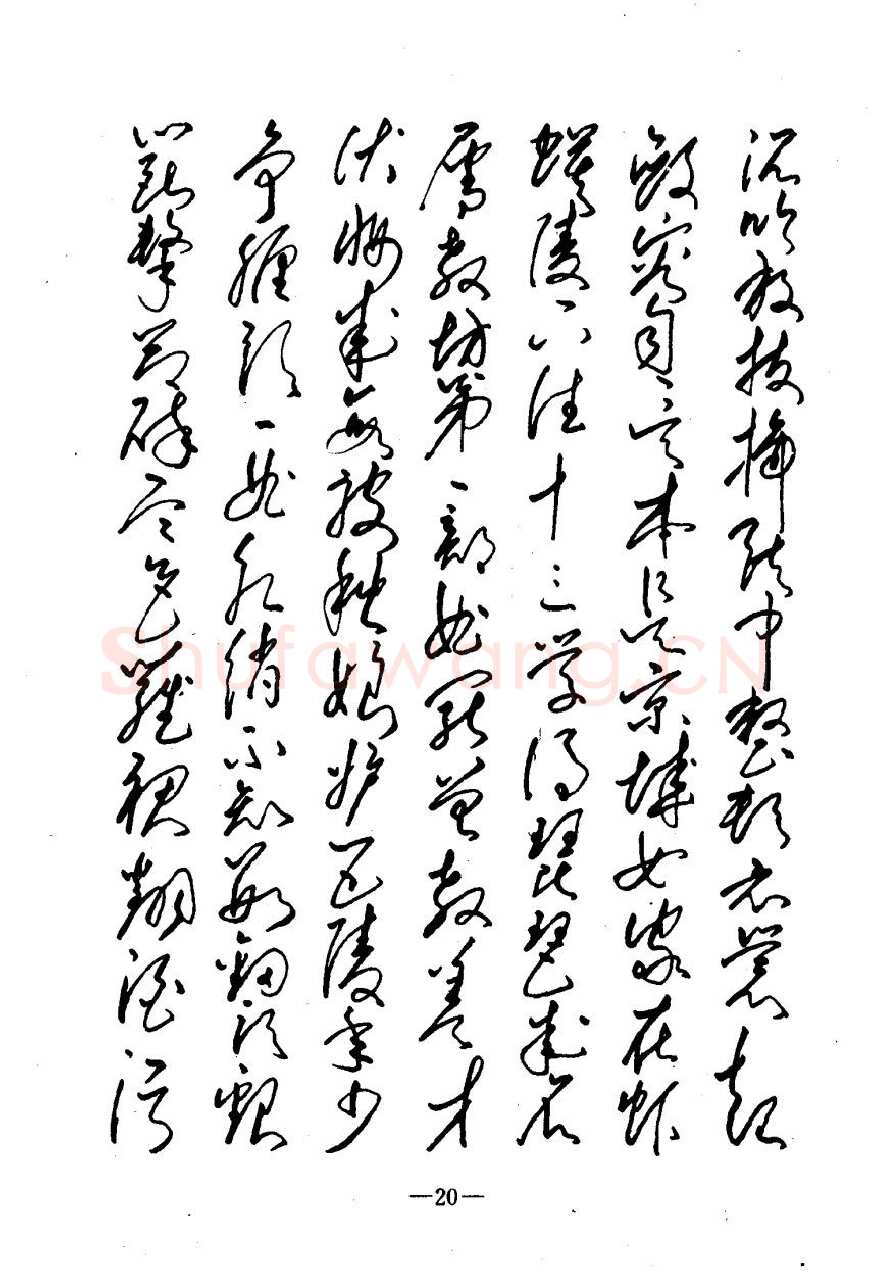 沉吟放撥插弦中整頓衣裳起
斂容自言本是京城女家在蝦
蟆陵下住十三學得琵琶成名
屬教坊第一部曲罷曾教善才
伏妝成每被秋娘妒五陵年少
爭纏頭一曲紅綃不知數鈿頭銀
篦擊節碎血色羅裙翻酒污
—20—
Shufawang.CN